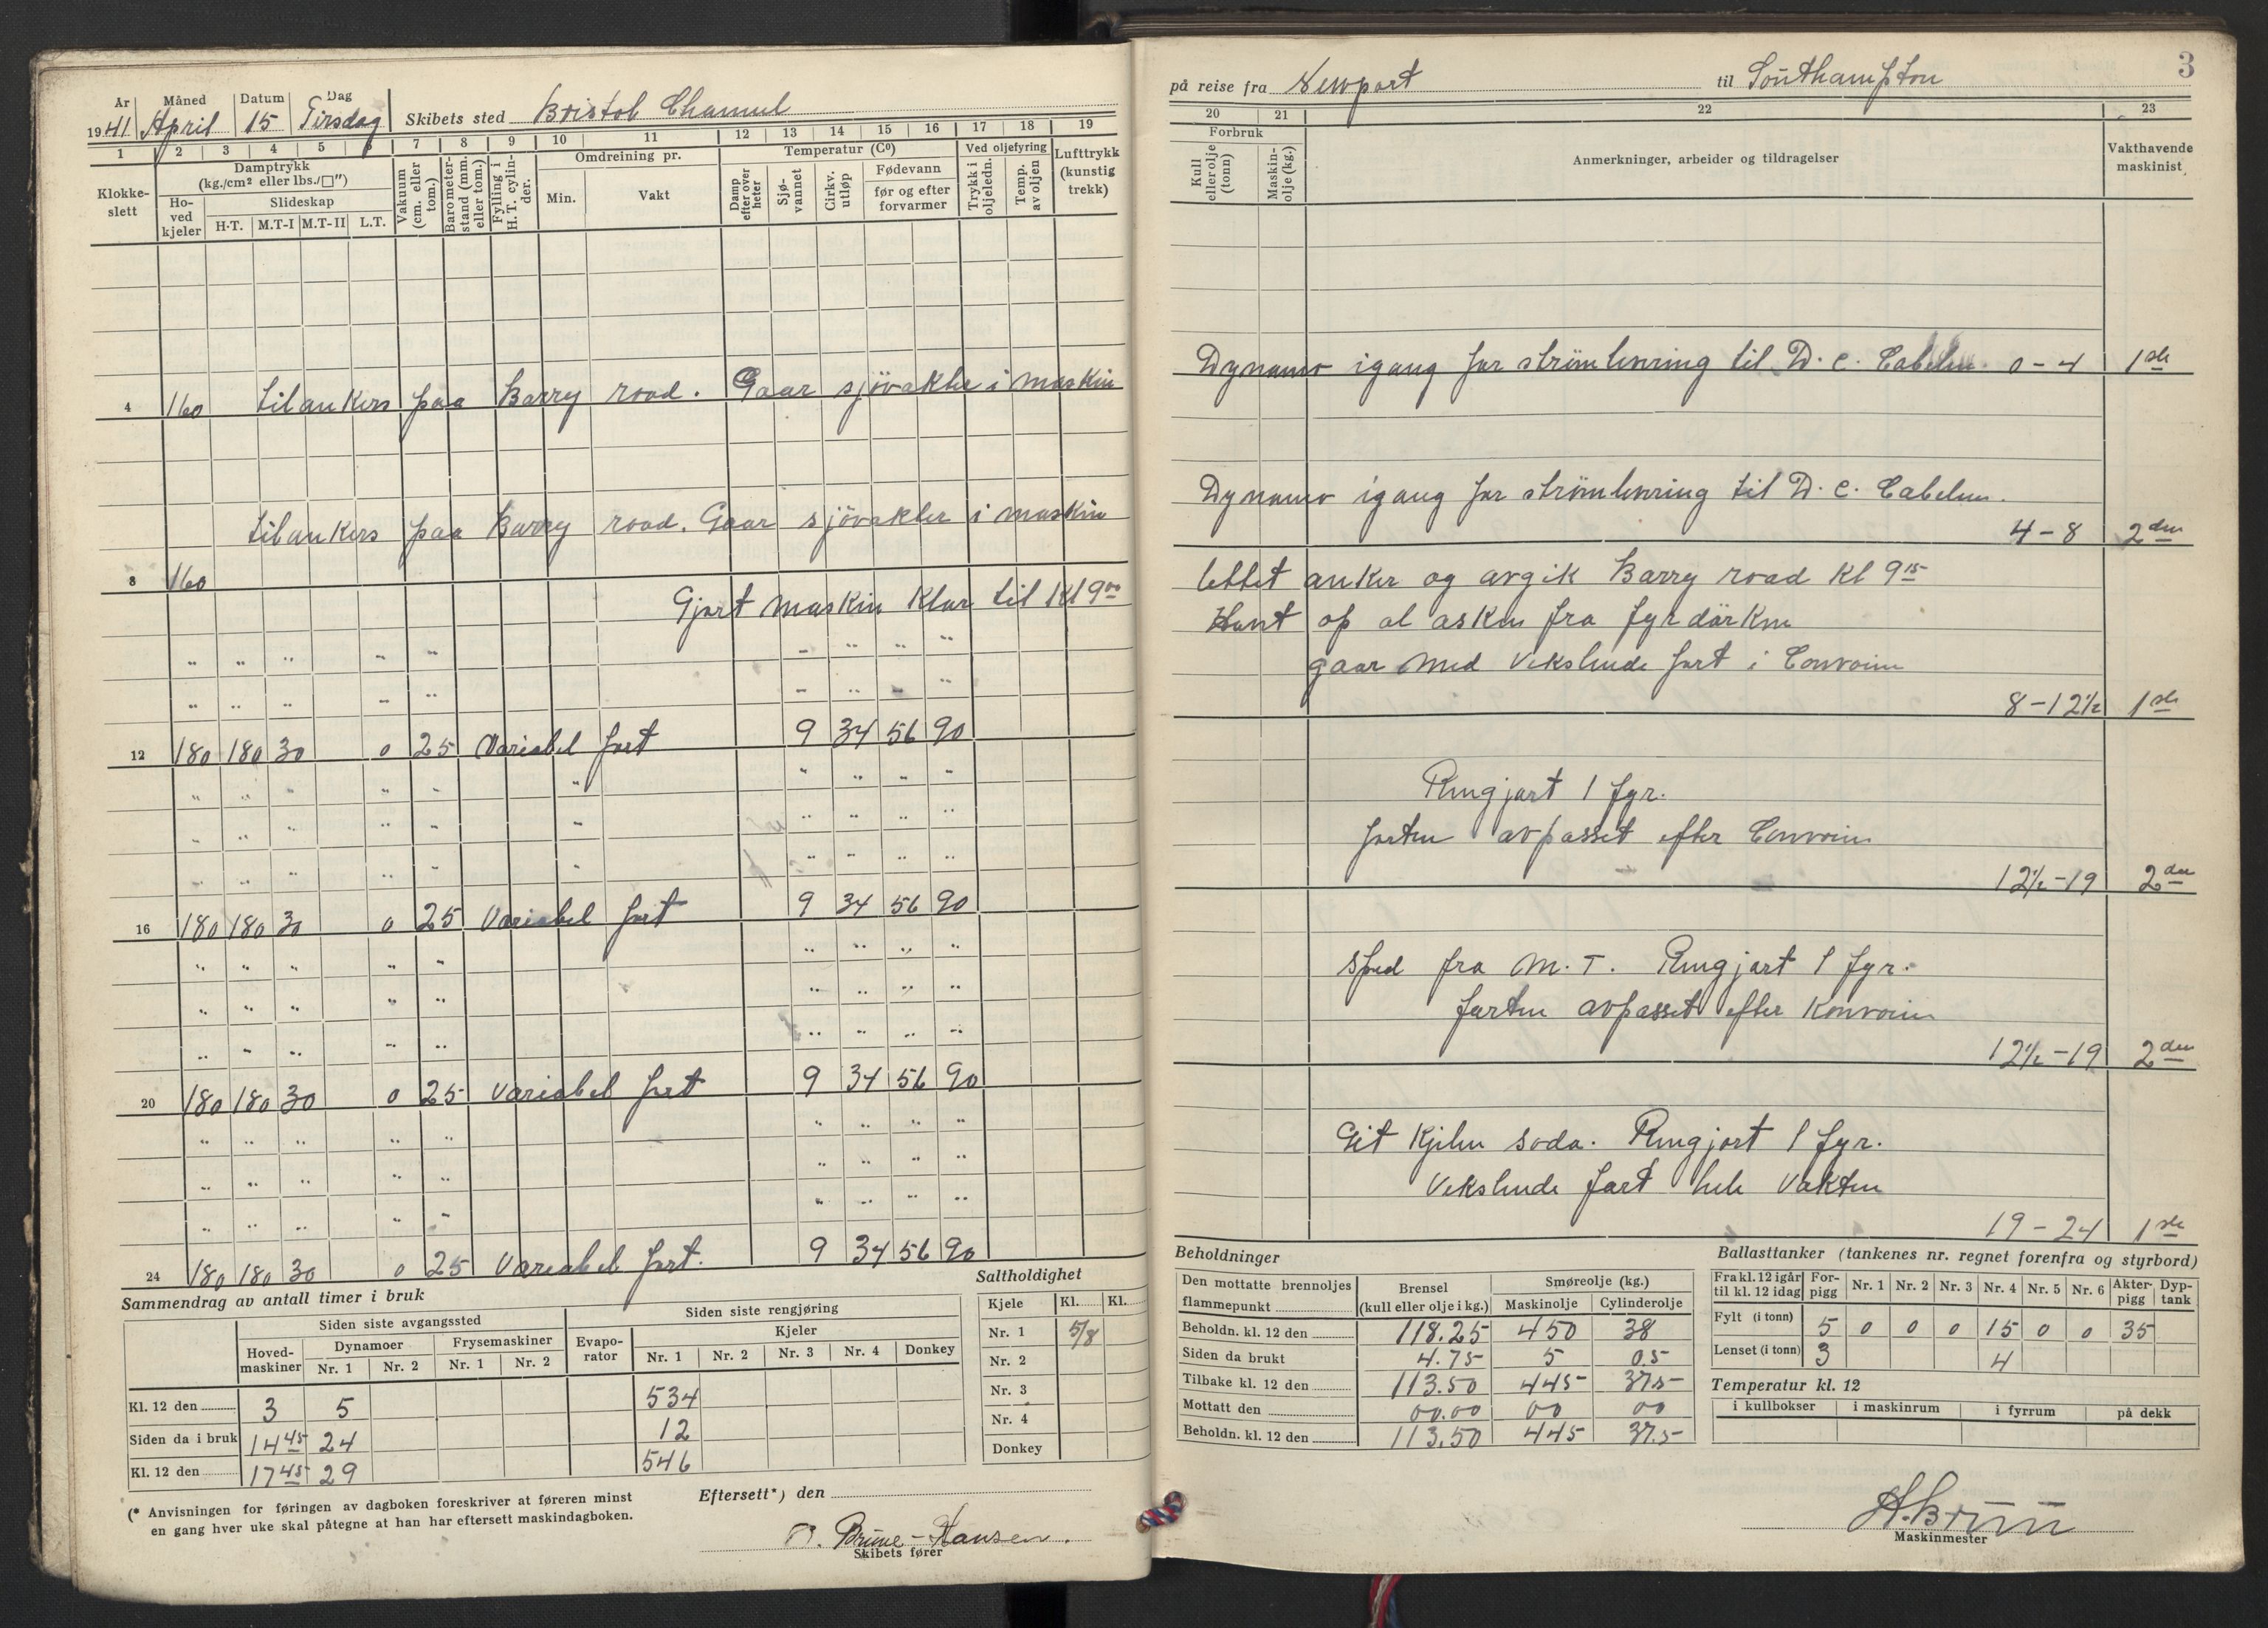 År Måned Datum Dag
1941 April 15 Tirsdag Skibets sted Bristol Channel
1 2 3 4 5 6 7 8 9 10 11 12 13 14 15 16 17 18 19
Klokke-slett
Damptrykk (kg./cm² eller lbs./□")
Ho-ved kjeler
Slideskap
H.T. M.T-I M.T-II L.T.
Vakuum (cm. eller tom.)
Barometer-stand (mm. eller tom.)
Fylling i H.T. cylin-der.
Omdreining pr.
Min. Vakt
Temperatur (C⁰)
Damp efter over heter
Sjø-vannet
Cirkv. utløp
Fødevann
før og efter forvarmer
Ved oljefyring
Trykk i oljeledn.
Temp. av oljen
Lufttrykk (kunstig trekk)
4 160 til ankers paa Barry road. Gaar sjövakter i maskin
til ankers paa Barry road. Gaar sjövakter i maskin
8 160
Gjort maskin klar til Kl 9⁰⁰
" " " " " " " " "
" " " " " " " " "
12 180 180 30 0 25 Variabel fart 9 34 56 90
" " " " " " " " " "
" " " " " " " " " "
" " " " " " " " " "
16 180 180 30 0 25 Variabel fart 9 34 56 90
" " " " " " " " "
" " " " " " " " "
" " " " " " " " "
20 180 180 30 0 25 Variabel fart 9 34 56 90
" " " " " " " " "
" " " " " " " " "
" " " " " " " " "
24 180 180 30 0 25 Variabel fart. 9 34 56 90
Sammendrag av antall timer i bruk
Siden siste avgangssted
Siden siste rengjøring
Hoved-maskiner Dynamoer Frysemaskiner Evapo-rator Kjeler
Nr. 1 Nr. 2 Nr. 1 Nr. 2 Nr. 1 Nr. 2 Nr. 3 Nr. 4 Donkey
Kl. 12 den 3 5 534
Siden da i bruk 14⁴⁵ 24 12
Kl. 12 den 17⁴⁵ 29 546
Saltholdighet
Kjele Kl. Kl.
Nr. 1 5/8
Nr. 2
Nr. 3
Nr. 4
Donkey
(* Anvisningen for føringen av dagboken foreskriver at føreren minst
en gang hver uke skal påtegne at han har eftersett maskindagboken.
Eftersett*) den
O. Brune-Hansen.
Skibets fører
3
på reise fra Newport til Southampton
20 21 22 23
Forbruk
Kull eller olje (tonn)
Maskin-olje (kg.)
Anmerkninger, arbeider og tildragelser
Vakthavende maskinist
Dynamo igang for strömlevering til D. C. Cabelen 0-4 1ste
Dynamo igang for strömlevering til D. C. Cabelen.
4-8 2den
lettet anker og avgik Barry road kl 9¹⁵
Hevet op al asken fra fyrdörken
gaar med Vekslende fart i Convoien
8-12½ 1ste
Rengjort 1 fyr.
farten avpasset efter Convoien
12½-19 2den
Sped fra M. T. Rengjort 1 fyr.
farten avpasset efter Konvoien
12½-19 2den
Git Kjelen soda. Rengjort 1 fyr.
Vekslende fart hele Vakten
19-24 1ste
Beholdninger
Den mottatte brennoljes flammepunkt
Brensel (kull eller olje i kg.)
Smøreolje (kg.)
Maskinolje Cylinderolje
Beholdn. kl. 12 den 118.25 450 38
Siden da brukt 4.75 5 0.5
Tilbake kl. 12 den 113.50 445 37.5
Mottatt den 00.00 00 00
Beholdn. kl. 12 den 113.50 445 37.5
Ballasttanker (tankenes nr. regnet forenfra og styrbord)
Fra kl. 12 igår til kl. 12 idag For-pigg Nr. 1 Nr. 2 Nr. 3 Nr. 4 Nr. 5 Nr. 6 Akter-pigg Dyp-tank
Fylt (i tonn) 5 0 0 0 15 0 0 35
Lenset (i tonn) 3 4
Temperatur kl. 12
i kullbokser i maskinrum i fyrrum på dekk
A. Bruun
Maskinmester